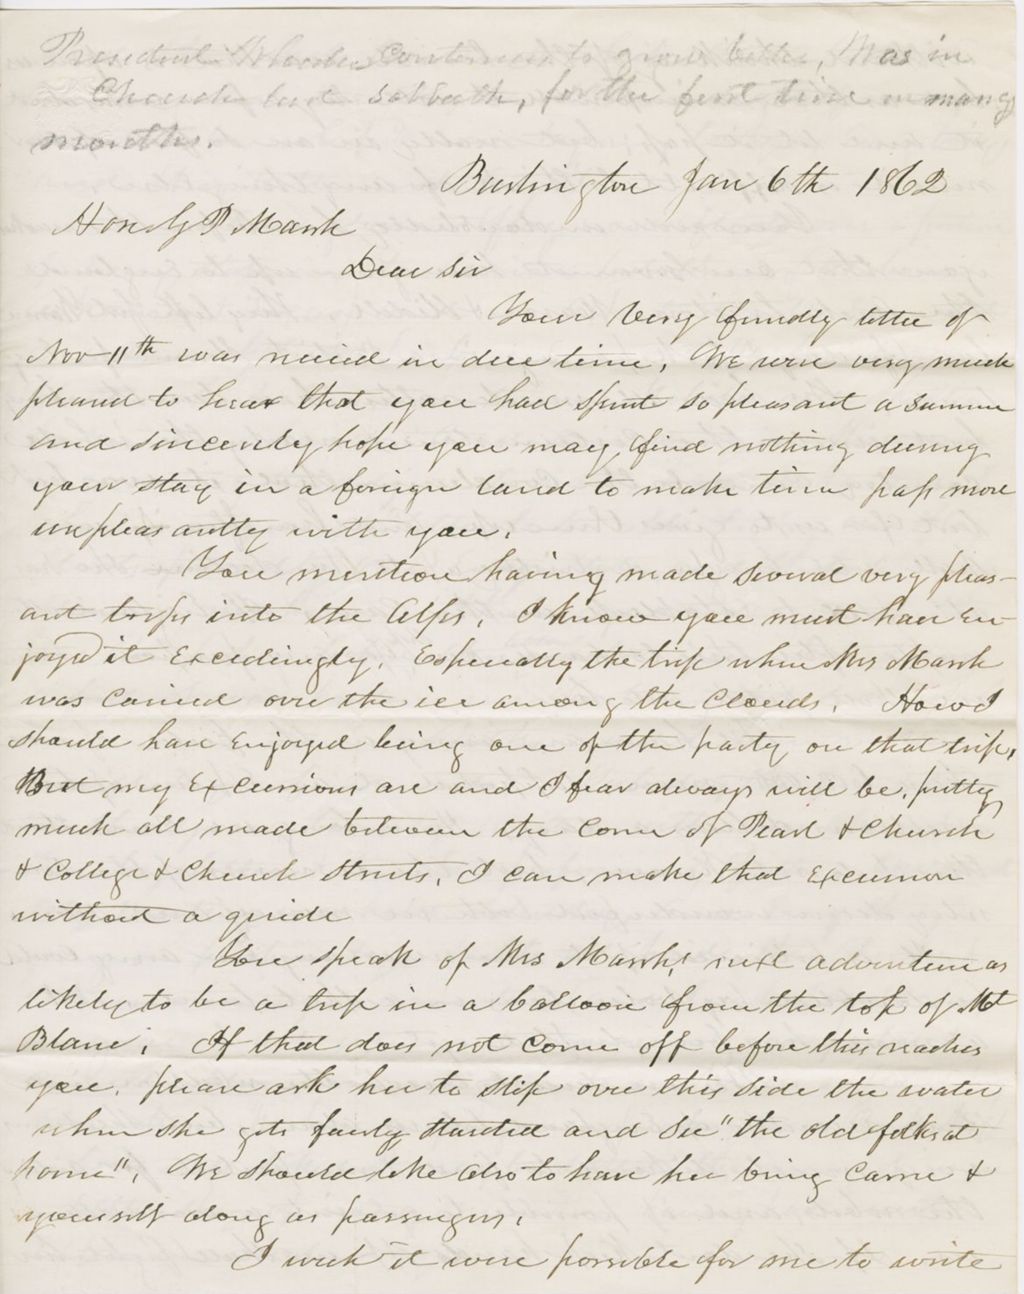 President Wheeler continues to grow better, Was in
Church last sabbath, for the first time in many
months.
Burlington Jan 6th 1862
Hon G P Marsh
Dear Sir
Your very friendly letter of
Nov 11th was received in due time. We were very much
pleased to hear that you had spent so pleasant a summer
and sincerely hope you may find nothing during
your stay in a foreign land to make time pass more
unpleasantly with you.
You mention having made several very pleas-
ant trips into the Alps. I know you must have en-
joyed it Excedingly. Especially the trip when Mrs Marsh
was carried over the ice among the Clouds. How I
should have enjoyed being one of the party on that trip,
But my Excursions are and I fear always will be, pritty
much all made between the corner of Pearl & Church
& College & Church Streets. I can make that Excursion
without a guide
You speak of Mrs Marsh's next adventure as
likely to be a trip in a balloon from the top of Mt
Blanc. If that does not come off before this reaches
you, please ask her to slip over this side the water
when she gets fairly started and see "the old folks at
home". We should like also to have her bring Carrie &
yourself along as passengers.
I wish it were possible for me to write